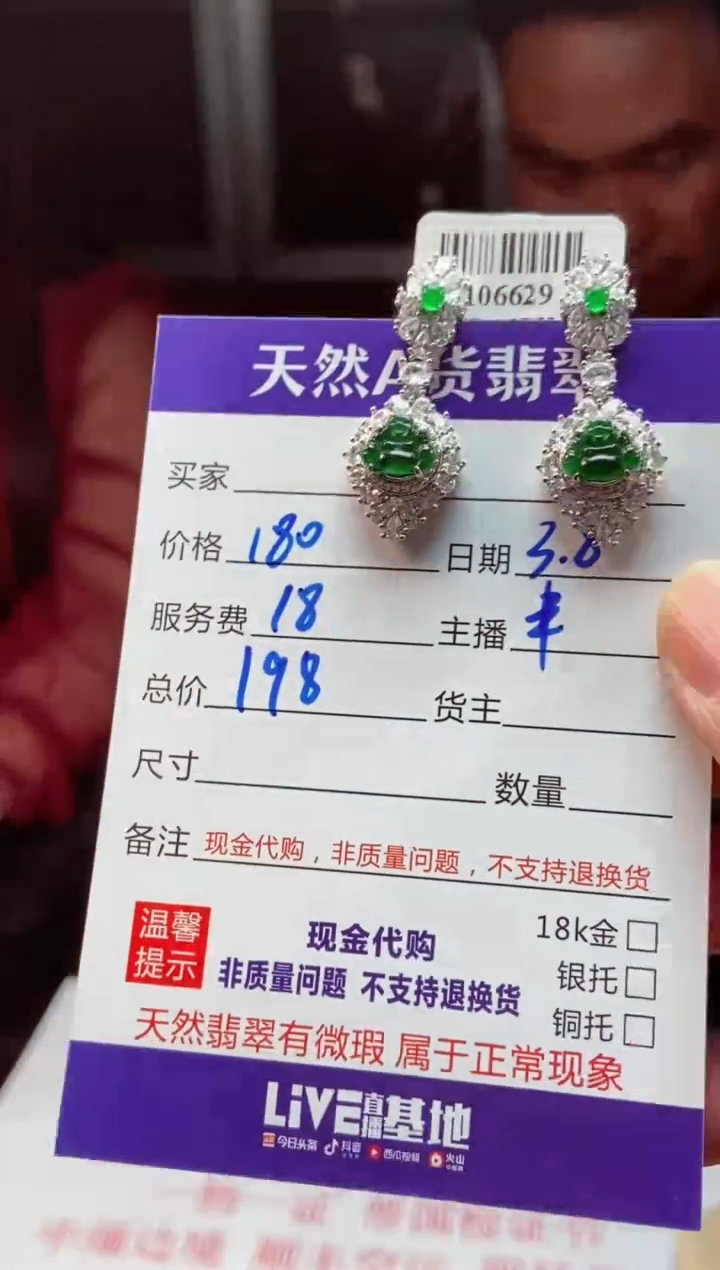 106629
天然A货翡翠
买家
价格 180 日期 3.8
服务费 18 主播 丰
总价 198 货主
尺寸 数量
备注 现金代购，非质量问题，不支持退换货
18k金
温馨提示
现金代购
银托
非质量问题 不支持退换货
铜托
天然翡翠有微瑕 属于正常现象
LiVE直播基地
今日头条 抖音 西瓜视频 火山